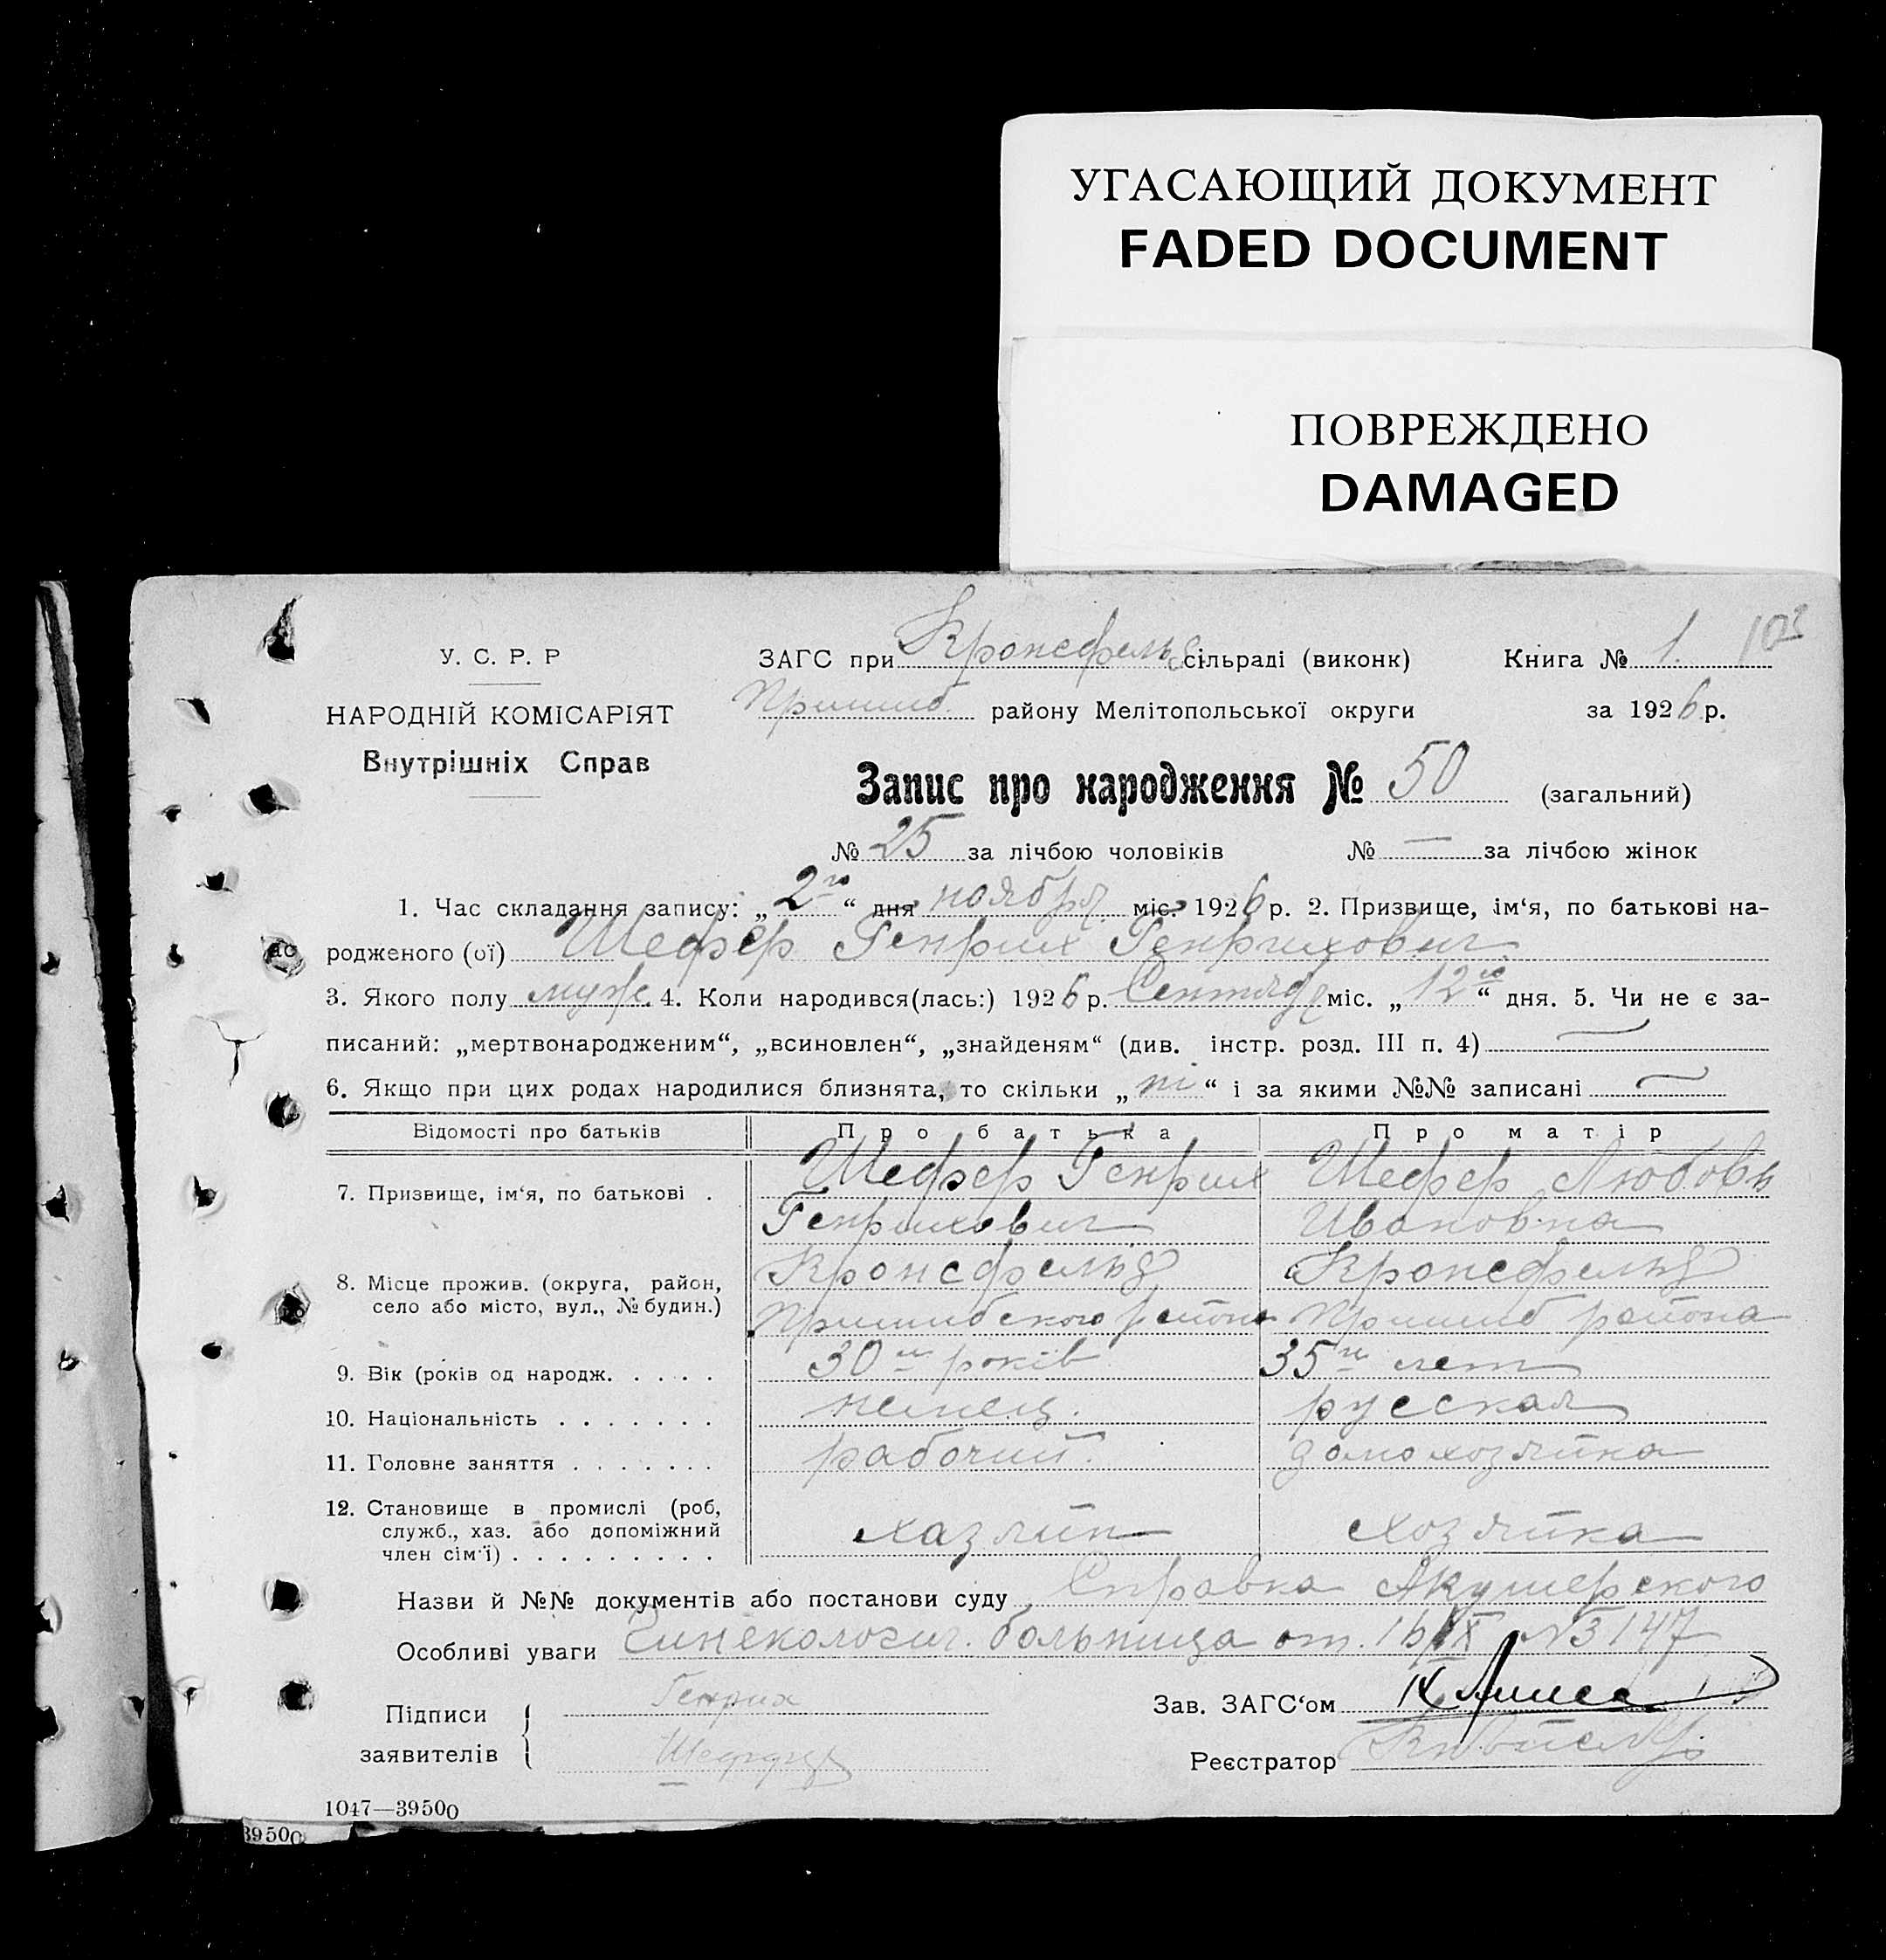 УГАСАЮЩИЙ ДОКУМЕНТ
FADED DOCUMENT
ПОВРЕЖДЕНО
DAMAGED
У. С. Р. Р
НАРОДНІЙ КОМІСАРІЯТ
Внутрішніх Справ
ЗАГС при Кронсфельд сільраді (виконк) Книга № 1. 103
Пришиб району Мелітопольської округи за 1926 р.
Запис про народження № 50 (загальний)
№ 25 за лічбою чоловіків № — за лічбою жінок
1. Час складання запису: „2го“ дня ноября міс. 1926 р. 2. Призвище, ім‘я, по батькові на-
родженого (ої) Шефер Генрих Генрихович
3. Якого полу муж. 4. Коли народився(лась:) 1926 р. Сентября міс. „12го“ дня. 5. Чи не є за-
писаний: „мертвонародженим“, „всиновлен“, „знайденям“ (див. інстр. розд. III п. 4) —
6. Якщо при цих родах народилися близнята, то скільки „ні“ і за якими №№ записані —
Відомості про батьків Про батька Про матір
7. Призвище, ім‘я, по батькові . Шефер Генрих Шефер Любовь
Генрихович Ивановна
8. Місце прожив. (округа, район, Кронсфельд Кронсфельд
село або місто, вул., № будин.) Пришибского района Пришиб района
9. Вік (років од народж. . . . . 30ти років 35ти лет
10. Національність . . . . . . . немец. русская
11. Головне заняття . . . . . . . рабочий. домохозяйка
12. Становище в промислі (роб,
служб., хаз. або допоміжний хазяин хозяйка
член сім‘ї) . . . . . . . . .
Назви й №№ документів або постанови суду Справка Акушерского
Особливі уваги Гинекологич. больница от. 16/IX №3147
Підписи Генрих Зав. ЗАГС‘ом
заявителів Шеффер Реєстратор
1047—39500
39500